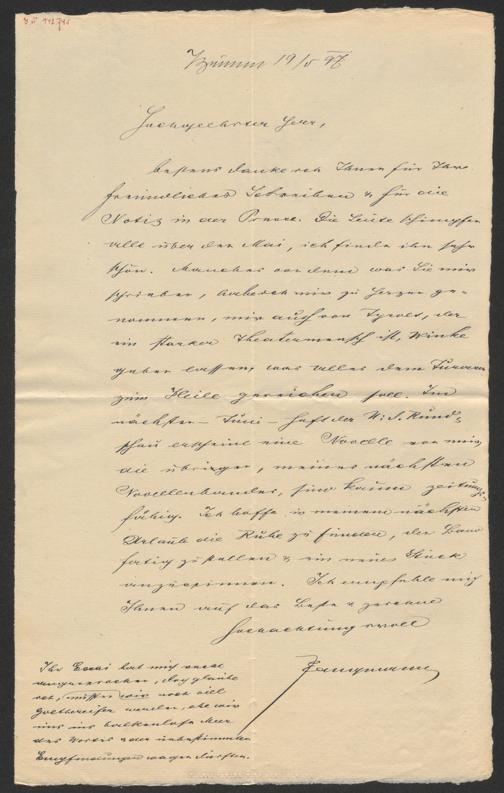 Brünn 19/5 98
Hochgeehrter Herr,
bestens danke ich Ihnen für Ihr
freundliches Schreiben & für die
Notiz in der Presse. Die Leute schimpfen
alle über den Mai, ich finde ihn sehr
schön. Manches von dem was Sie mir
schrieben, habe ich mir zu Herzen ge-
nommen, mir auch von Tyrolt, der
ein starker Theatermensch ist, Winke
geben lassen, was alles dem
zum Heile gereichen soll. Im
nächsten – Juni – Heft der N. D. Rund-
schau erscheint eine Novelle von mir,
die übrigen, meines nächsten
Novellenbandes, sind kaum zeitungs-
fähig. Ich hoffe in meinem nächsten
Urlaub die Ruhe zu finden, den Band
fertig zu stellen & ein neues Stück
anzuspinnen. Ich empfehle mich
Ihnen auf das Beste & zeichne
Hochachtungsvoll
Langmann
Ihr Essai hat mich sehr
angesprochen, doch glaube
ich, müssen wir noch viel
werden, ehe wir
uns ins balkenlose Meer
des Wortes oder unbestimmter
Empfindungen wagen dürften.